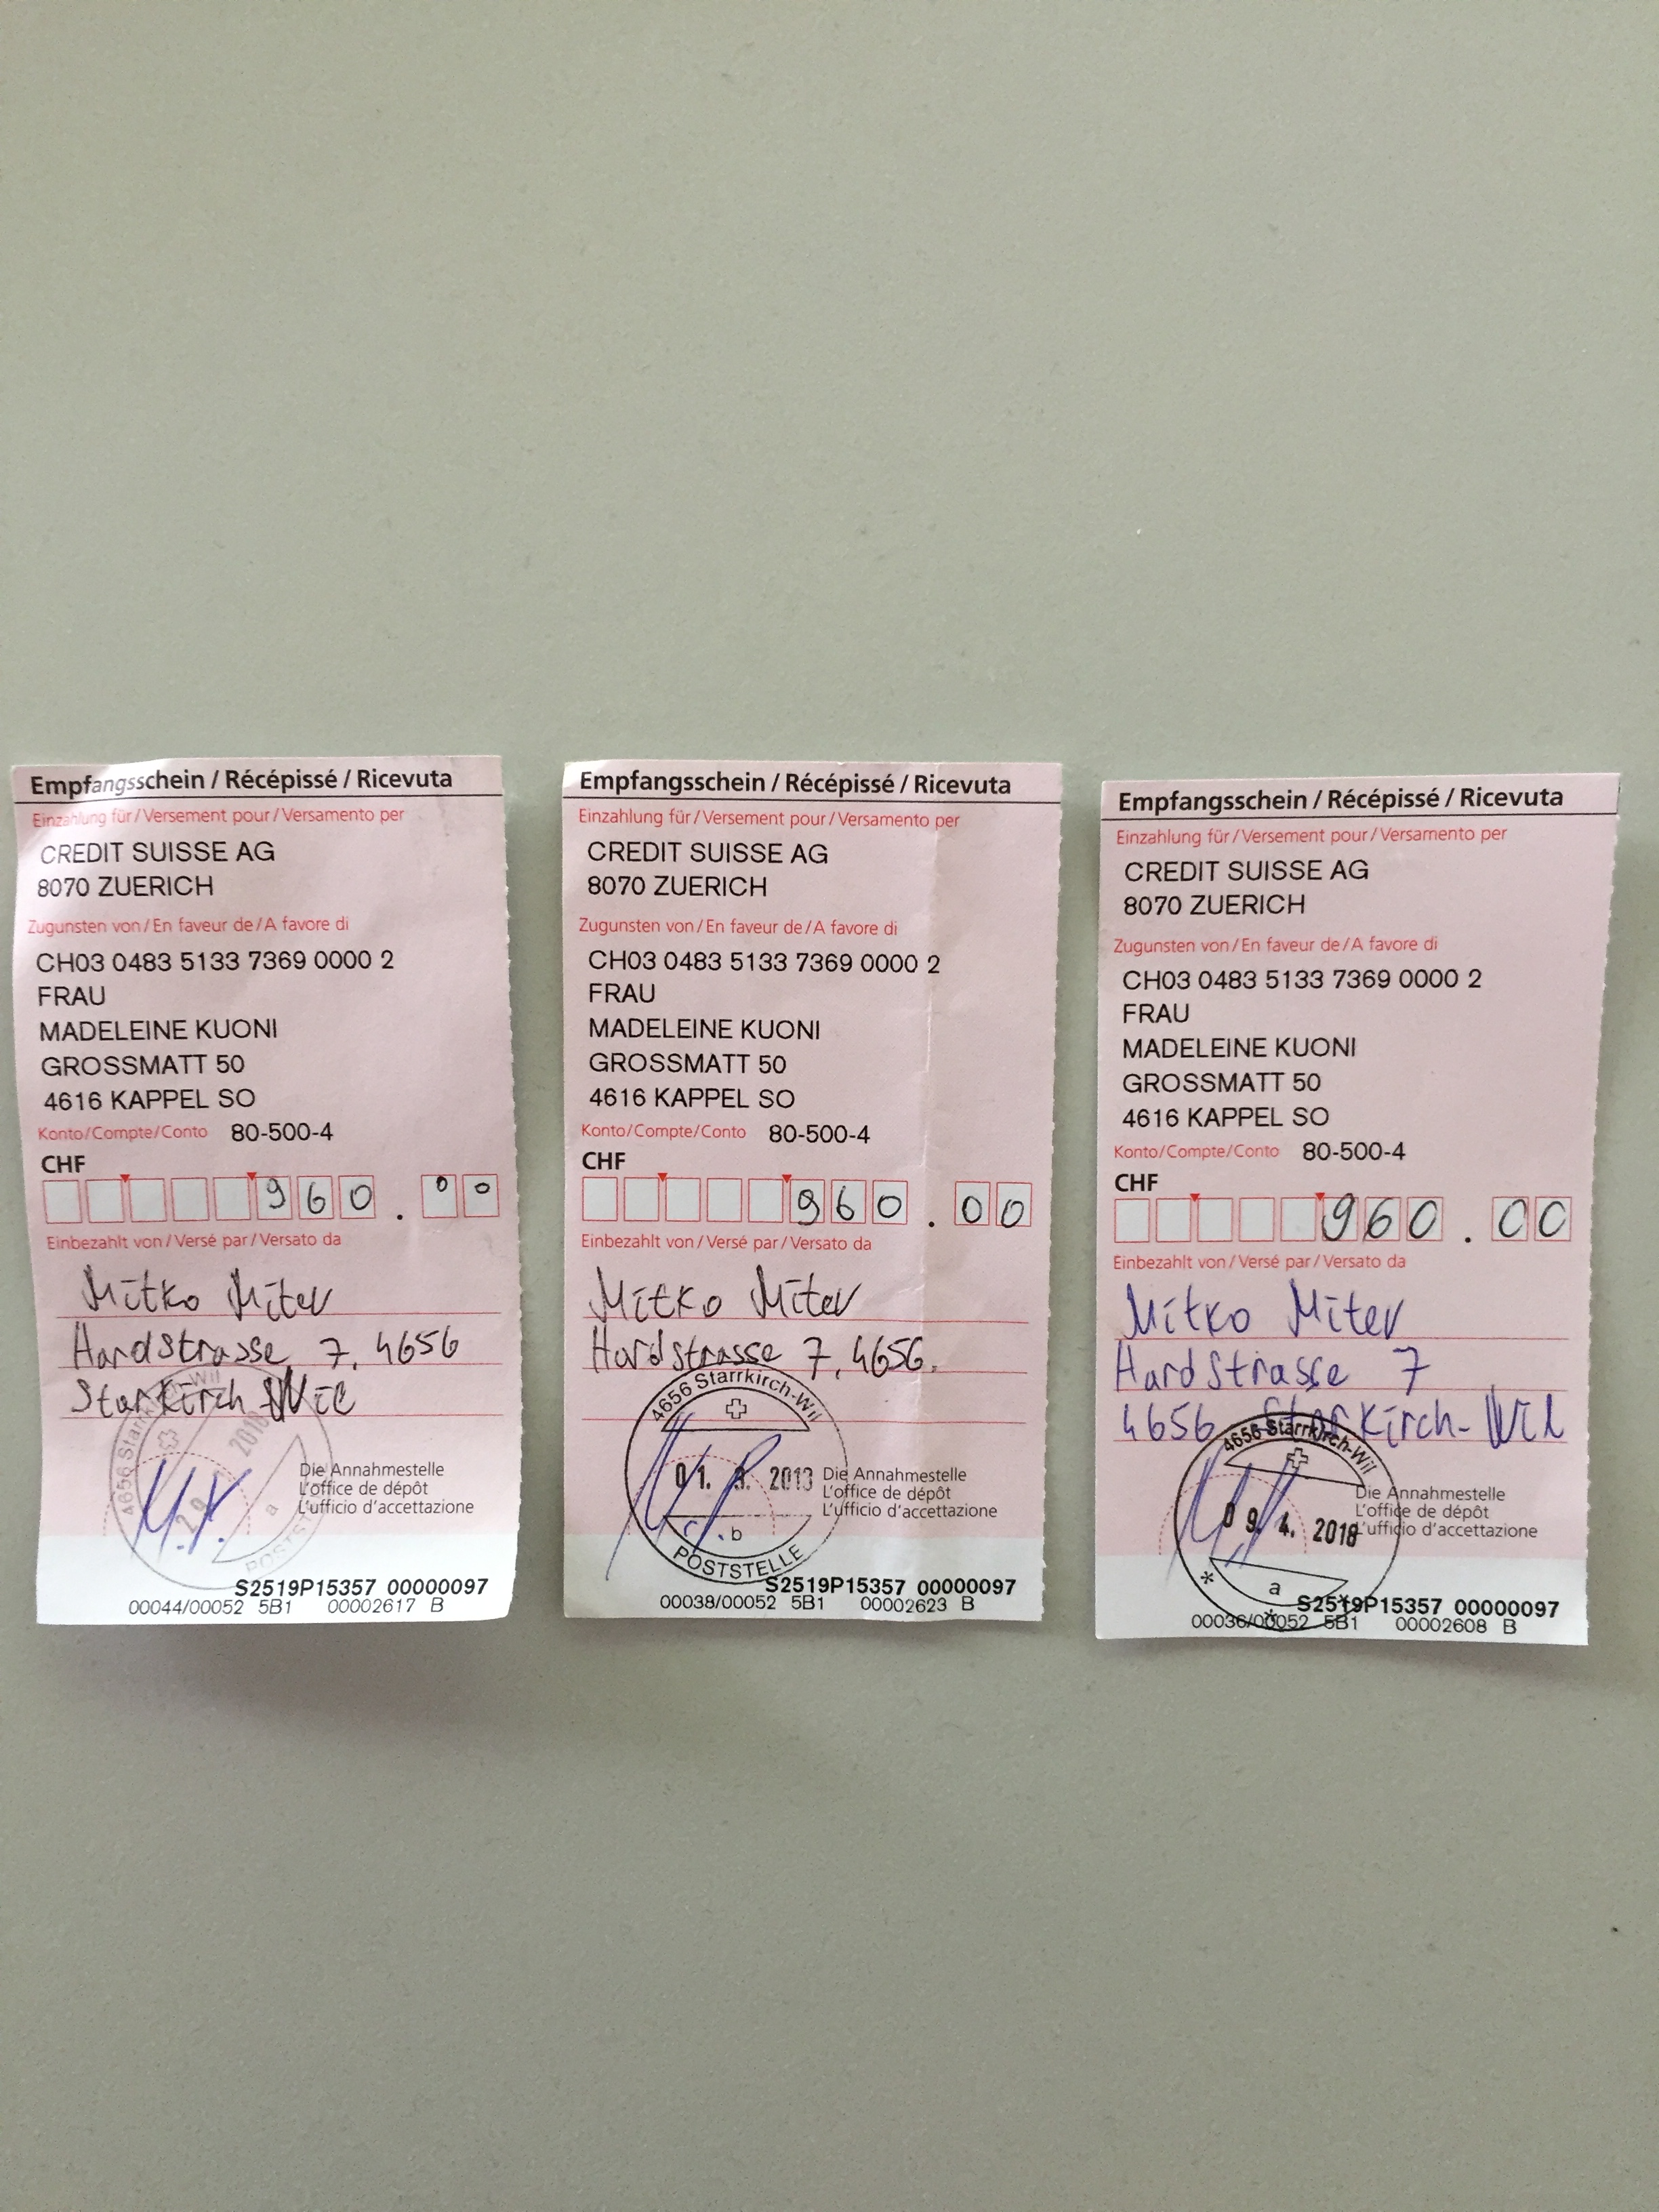 Empfangsschein / Récépissé / Ricevuta
Einzahlung für / Versement pour / Versamento per
CREDIT SUISSE AG
8070 ZUERICH
Zugunsten von / En faveur de / A favore di
CH03 0483 5133 7369 0000 2
FRAU
MADELEINE KUONI
GROSSMATT 50
4616 KAPPEL SO
Konto/Compte/Conto 80-500-4
CHF
960.00
Einbezahlt von / Versé par / Versato da
Mitko Mitev
Hardstrasse 7, 4656
Starkirch Wil
4656 Starrkirch-Wil
2018
a
POSTSTELLE
Die Annahmestelle
L'office de dépôt
L'ufficio d'accettazione
S2519P15357 00000097
00044/00052 5B1 00002617 B
Empfangsschein / Récépissé / Ricevuta
Einzahlung für / Versement pour / Versamento per
CREDIT SUISSE AG
8070 ZUERICH
Zugunsten von / En faveur de / A favore di
CH03 0483 5133 7369 0000 2
FRAU
MADELEINE KUONI
GROSSMATT 50
4616 KAPPEL SO
Konto/Compte/Conto 80-500-4
CHF
960.00
Einbezahlt von / Versé par / Versato da
Mitko Mitev
Hardstrasse 7, 4656.
4656 Starrkirch-Wil
01. 3.
b
POSTSTELLE
Die Annahmestelle
L'office de dépôt
L'ufficio d'accettazione
S2519P15357 00000097
00038/00052 5B1 00002623 B
Empfangsschein / Récépissé / Ricevuta
Einzahlung für / Versement pour / Versamento per
CREDIT SUISSE AG
8070 ZUERICH
Zugunsten von / En faveur de / A favore di
CH03 0483 5133 7369 0000 2
FRAU
MADELEINE KUONI
GROSSMATT 50
4616 KAPPEL SO
Konto/Compte/Conto 80-500-4
CHF
960.00
Einbezahlt von / Versé par / Versato da
Mitko Mitev
Hardstrasse 7
4656 Starkirch-Wil
4656 Starrkirch-Wil
09. 4. 2018
a
Die Annahmestelle
L'office de dépôt
L'ufficio d'accettazione
S2519P15357 00000097
00036/00052 5B1 00002608 B